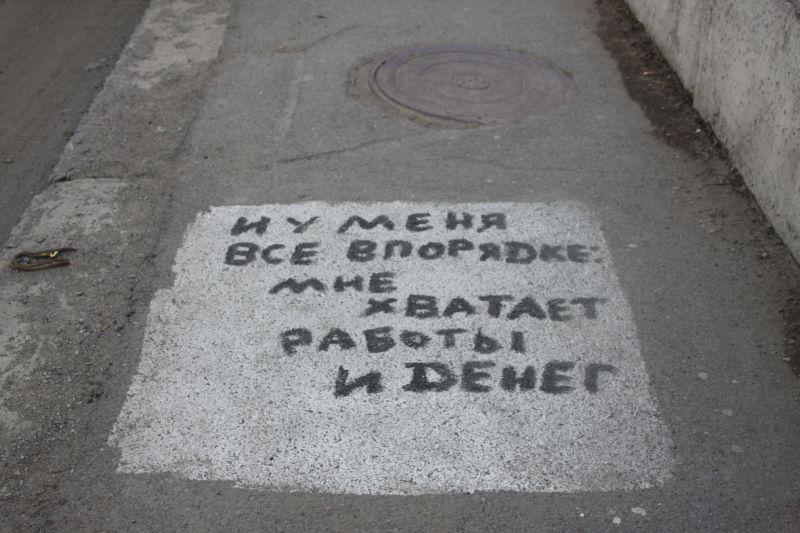 И У МЕНЯ
ВСЕ ВПОРЯДКЕ:
МНЕ
ХВАТАЕТ
РАБОТЫ
И ДЕНЕГ